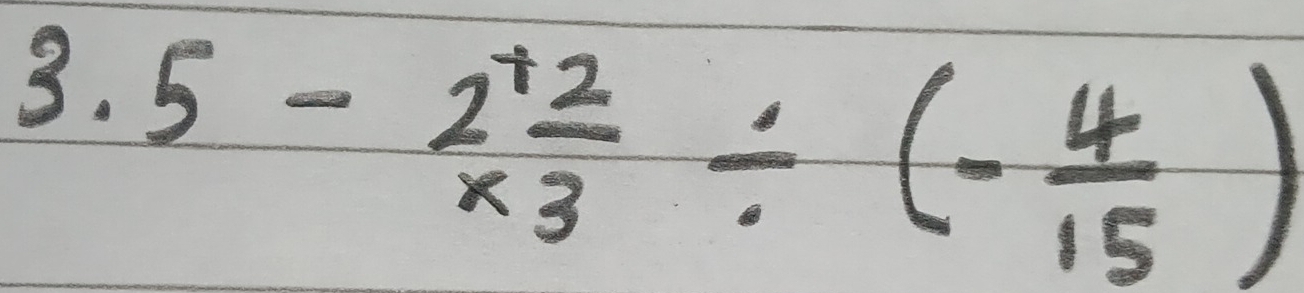 3.5 - 2 +2/×3 ÷ (- 4/15)